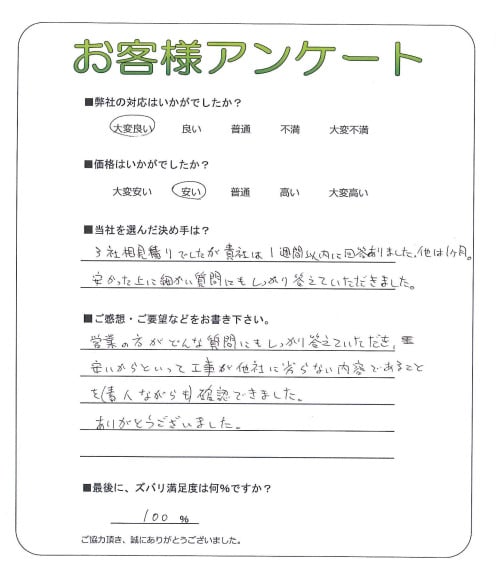 お客様アンケート
■弊社の対応はいかがでしたか？
大変良い 良い 普通 不満 大変不満
■価格はいかがでしたか？
大変安い 安い 普通 高い 大変高い
■当社を選んだ決め手は？
3社相見積りでしたが貴社は1週間以内に回答ありました。他は1ヶ月。
安かった上に細かい質問にもしっかり答えていただきました。
■ご感想・ご要望などをお書き下さい。
営業の方がどんな質問にもしっかり答えていただき、
安いからといって工事が他社に劣らない内容であること
を(素人ながらも)確認できました。
ありがとうございました。
■最後に、ズバリ満足度は何％ですか？
100 %
ご協力頂き、誠にありがとうございました。